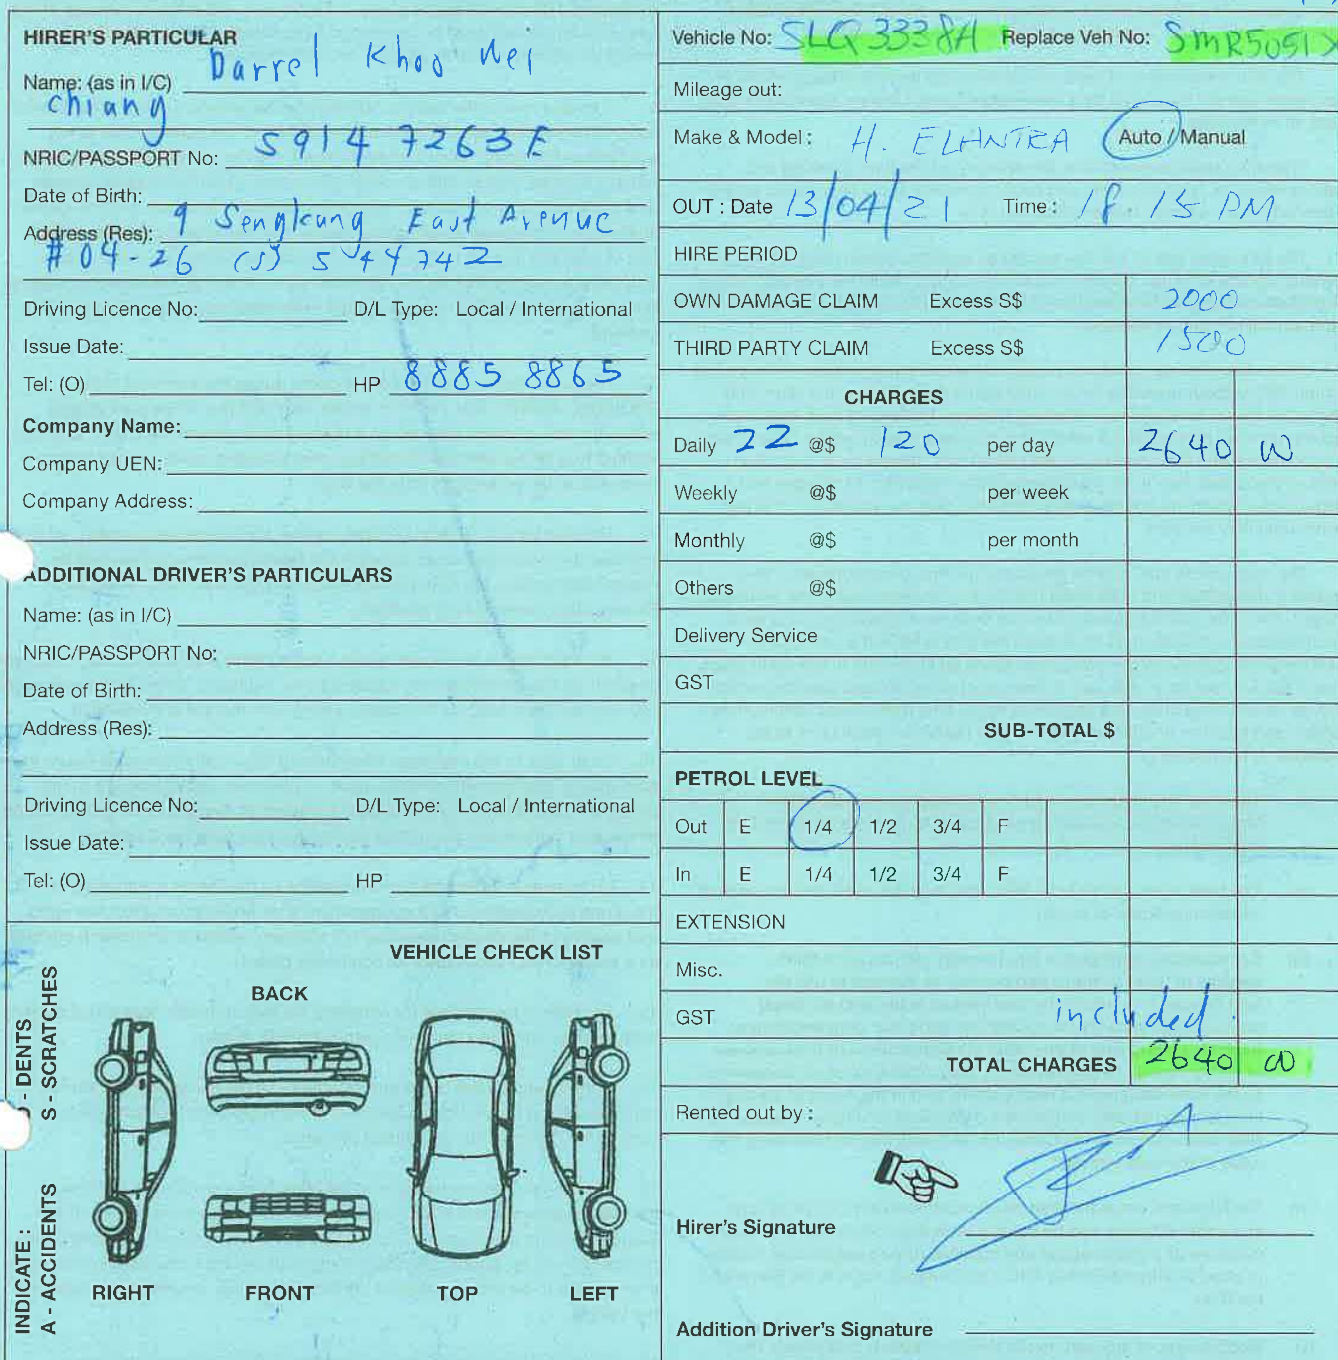 HIRER'S PARTICULAR
Name: (as in I/C) Darrel Khoo Wei
Chiang
NRIC/PASSPORT No: S9147263E
Date of Birth:
Address (Res): 9 Sengkang East Avenue
#04-26 (S) 544742
Driving Licence No: D/L Type: Local / International
Issue Date:
Tel: (O) HP 8885 8865
Company Name:
Company UEN:
Company Address:
ADDITIONAL DRIVER'S PARTICULARS
Name: (as in I/C)
NRIC/PASSPORT No:
Date of Birth:
Address (Res):
Driving Licence No: D/L Type: Local / International
Issue Date:
Tel: (O) HP
VEHICLE CHECK LIST
BACK
RIGHT FRONT TOP LEFT
INDICATE :
A - ACCIDENTS
- DENTS
S - SCRATCHES
Vehicle No: SLQ3338H Replace Veh No: SMR5051X
Mileage out:
Make & Model : H. ELANTRA Auto / Manual
OUT : Date 13/04/21 Time : 18.15 PM
HIRE PERIOD
OWN DAMAGE CLAIM Excess S$ 2000
THIRD PARTY CLAIM Excess S$ 1500
CHARGES
Daily 22 @$ 120 per day 2640 00
Weekly @$ per week
Monthly @$ per month
Others @$
Delivery Service
GST
SUB-TOTAL $
PETROL LEVEL
Out E 1/4 1/2 3/4 F
In E 1/4 1/2 3/4 F
EXTENSION
Misc.
GST included.
TOTAL CHARGES 2640 00
Rented out by :
Hirer's Signature
Addition Driver's Signature